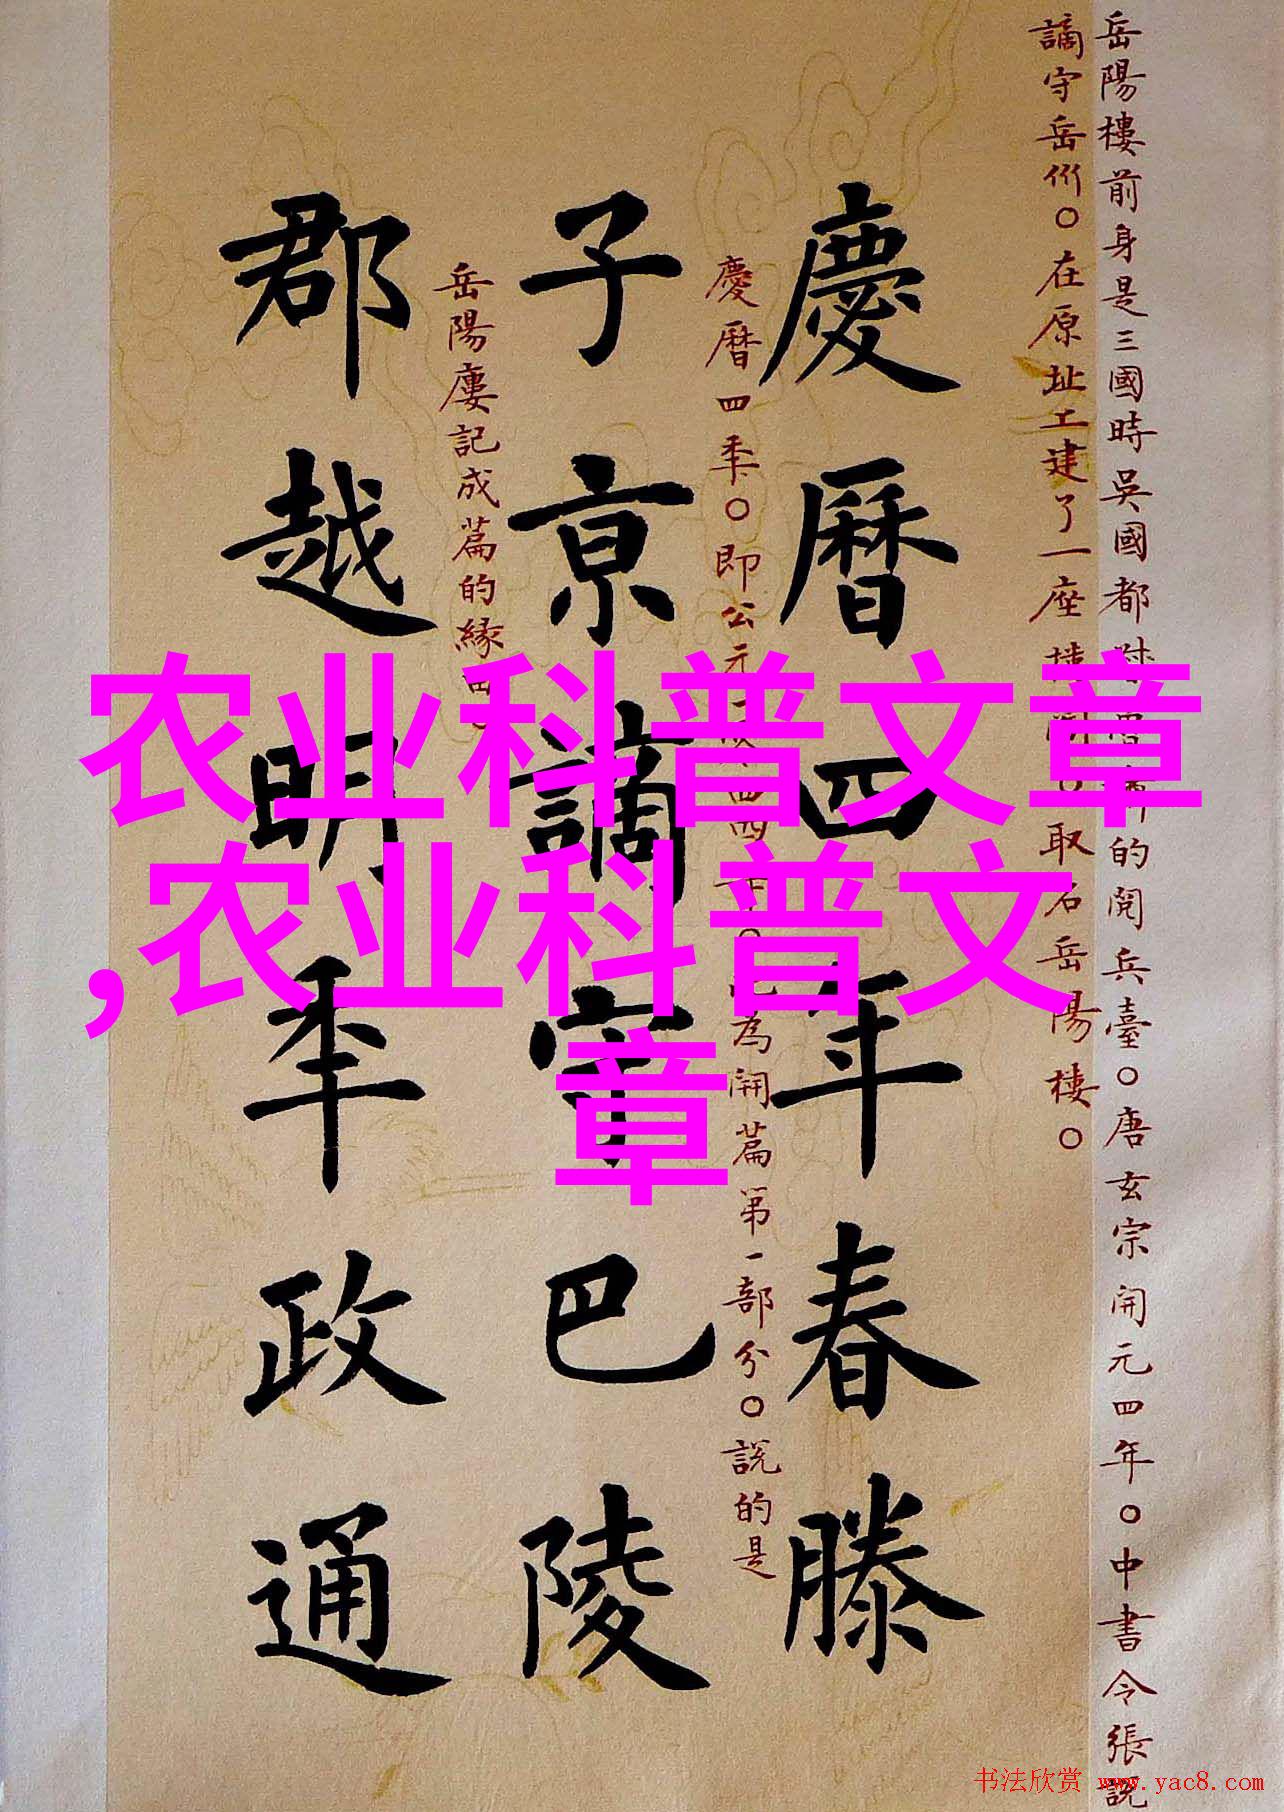 岳陽樓前身是三國時吳國都
的閱兵臺○唐玄宗開元四年○中書令張說
謫守岳州○在原址工建了一座
○取名岳陽樓○
慶曆四年春滕
慶曆四秊○即公元
為開篇第一部分○說的是
子京謫守巴陵
岳陽廔記成篇的緣
郡越明秊政通
农业科普文章
,农业科普文
章
书法欣赏 www.yac8.com